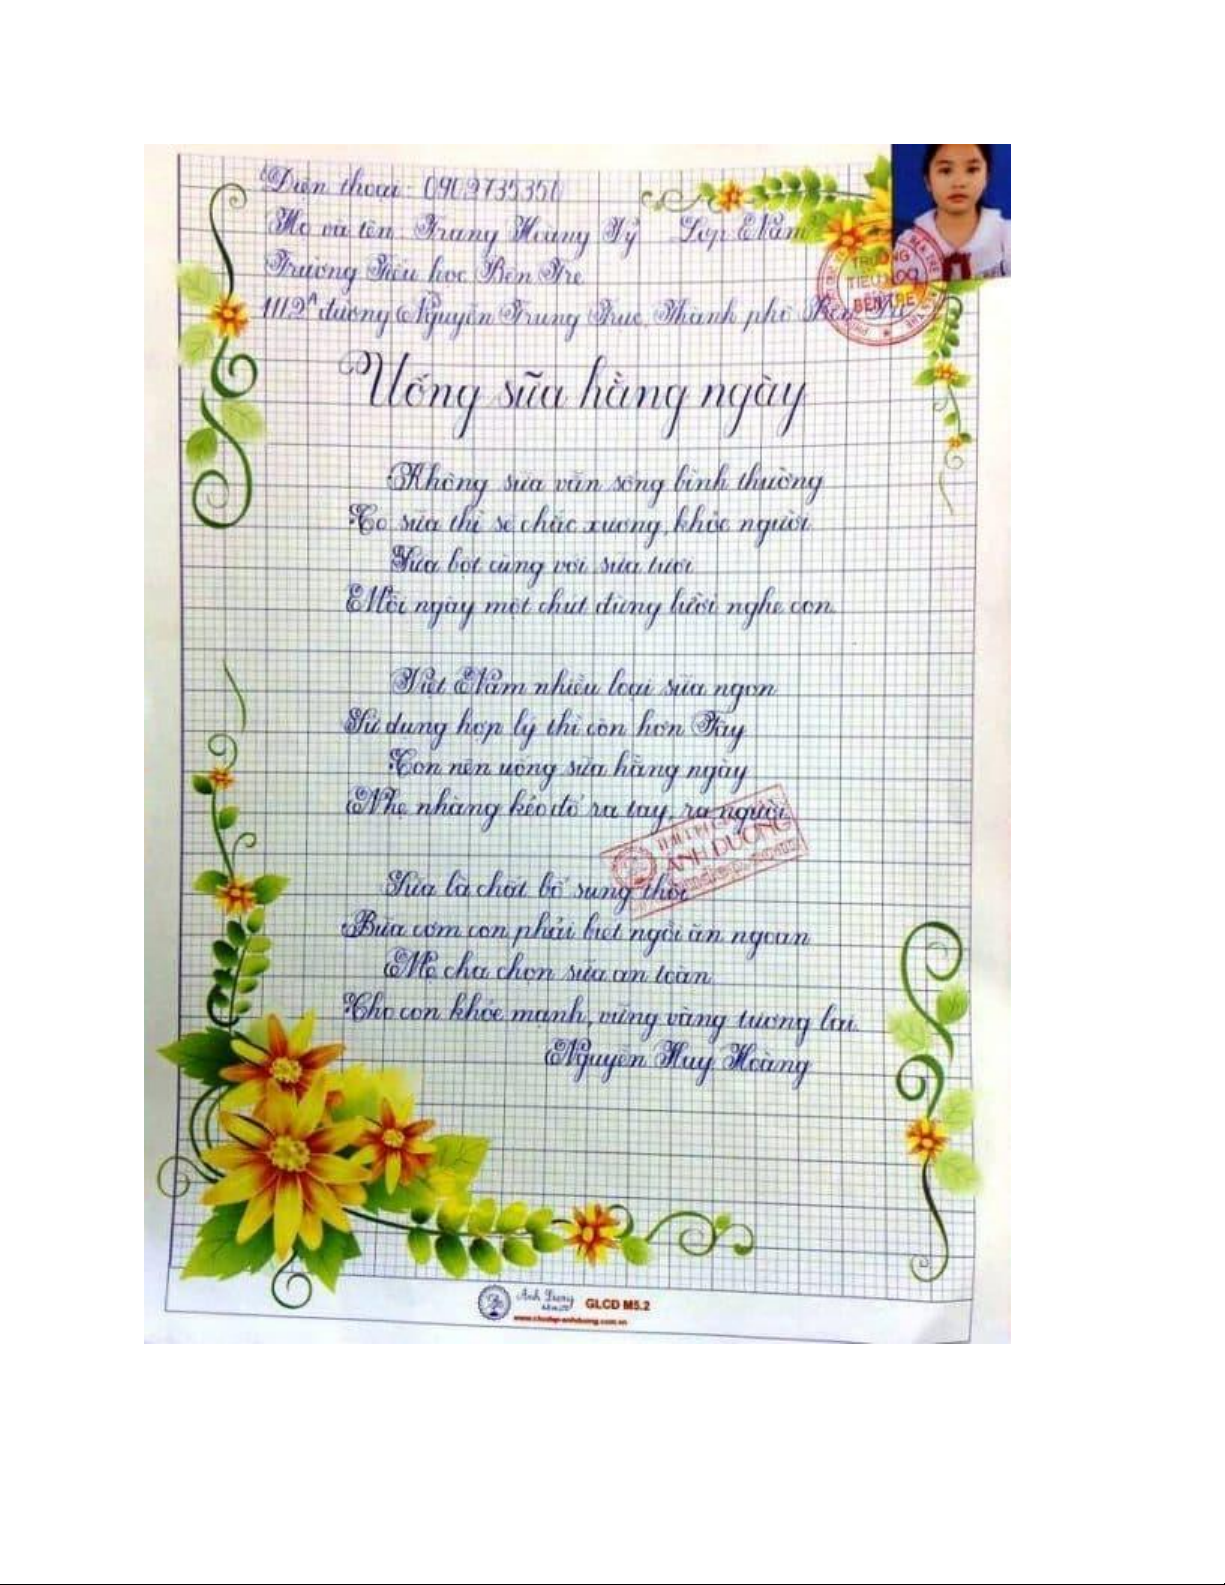 Điện thoại: 0902735350
Họ và tên: Trang Hoàng Tỷ Lớp Năm
Trường Tiểu học Bến Tre
1112A đường Nguyễn Trung Trực, Thành phố Bến Tre
TRƯỜNG
TIỂU HỌC
BẾN TRE
Uống sữa hằng ngày
Không sữa vẫn sống bình thường
Có sữa thì sẽ chắc xương, khỏe người
Sữa bột cùng với sữa tươi
Mỗi ngày một chút đừng lười nghe con.
Việt Nam nhiều loại sữa ngon
Sử dụng hợp lý thì còn hơn Tây
Con nên uống sữa hằng ngày
Nhẹ nhàng kẻo đổ ra tay, ra người.
ÁNH DƯƠNG
Sữa là chất bổ sung thôi
Bữa cơm con phải biết ngồi ăn ngoan
Mẹ cha chọn sữa an toàn
Cho con khỏe mạnh, vững vàng tương lai.
Nguyễn Huy Hoàng
Ánh Dương GLCD M5.2
www.chudep-anhduong.com.vn